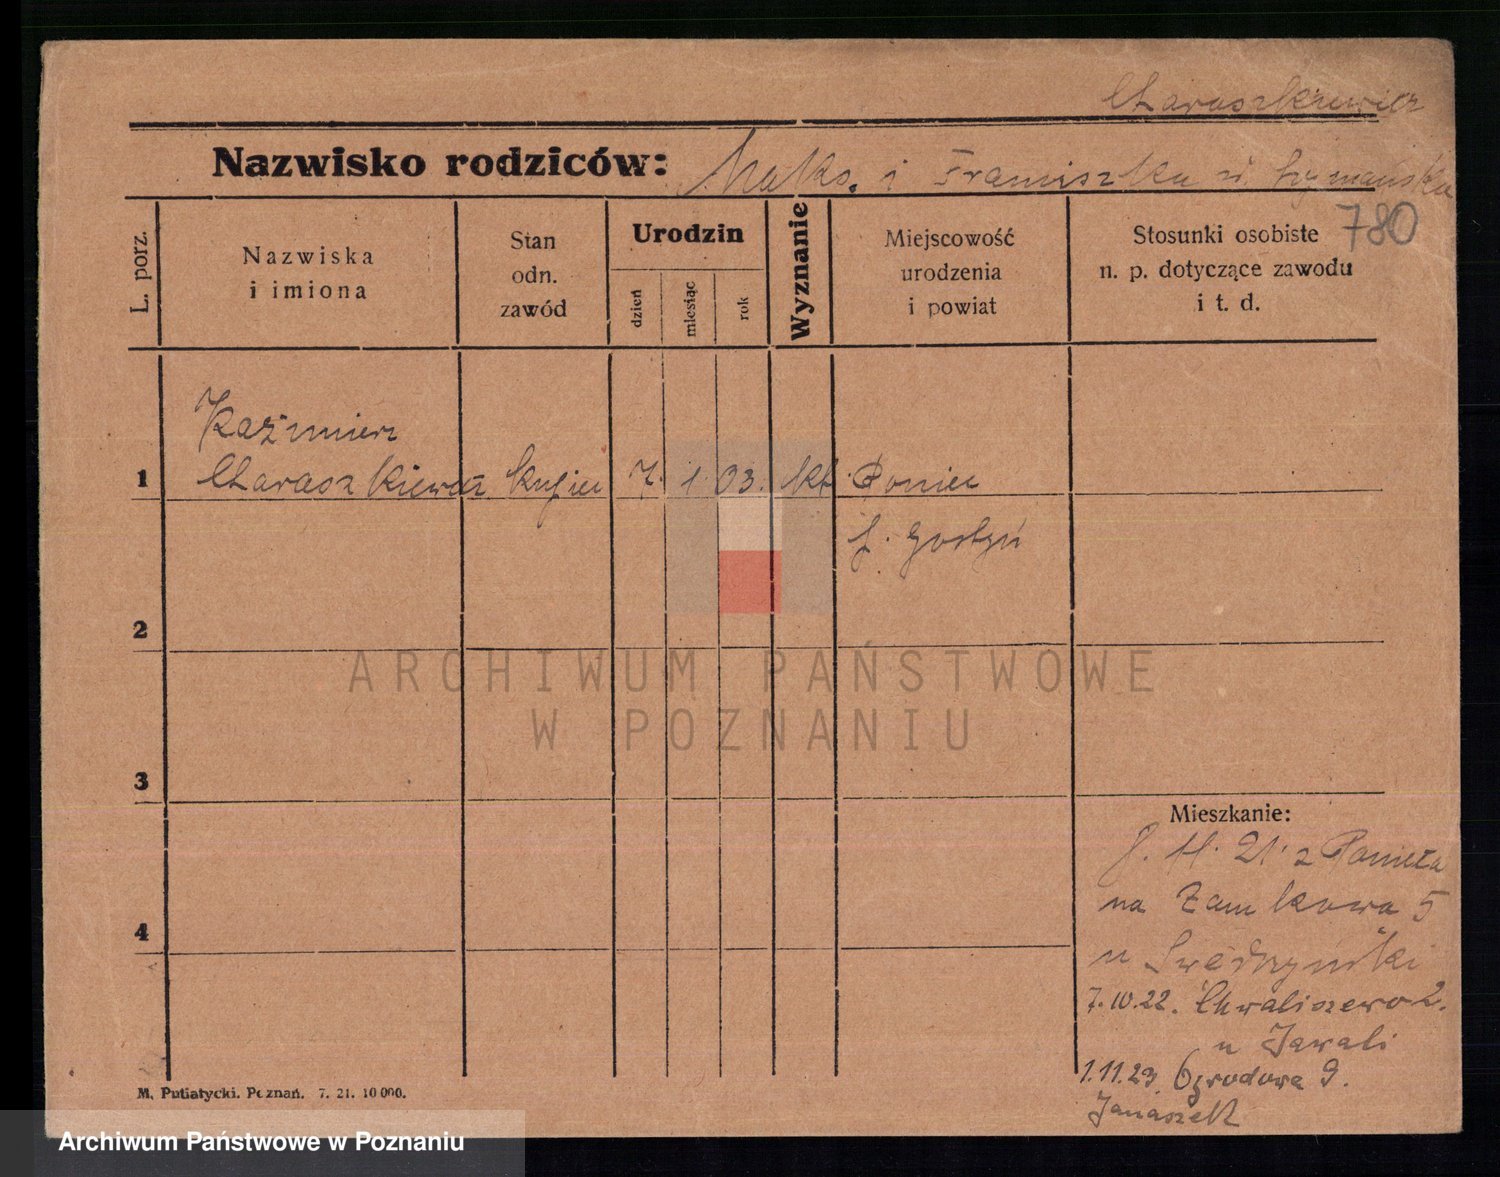 Charaszkiewicz
Nazwisko rodziców: Maks. i Franciszka z Szymańska
780
L. porz.
Nazwiska
i imiona
Stan
odn.
zawód
Urodzin
dzień
miesiąc
rok
Wyznanie
Miejscowość
urodzenia
i powiat
Stosunki osobiste
n. p. dotyczące zawodu
i t. d.
Kazimierz
1 Charaszkiewicz kupiec 7. 1. 03. kt. Poniec
Gostyń
2
ARCHIWUM PAŃSTWOWE
W POZNANIU
3
Mieszkanie:
11. 21. z Ponieca
4
na Zamkowa 5
u
7.10.22. Chwaliszewo 2.
u Jawali
1.11.23 Ogrodowa 9.
Janaszek
M. Putiatycki. Poznań. 7. 21. 10 000.
Archiwum Państwowe w Poznaniu